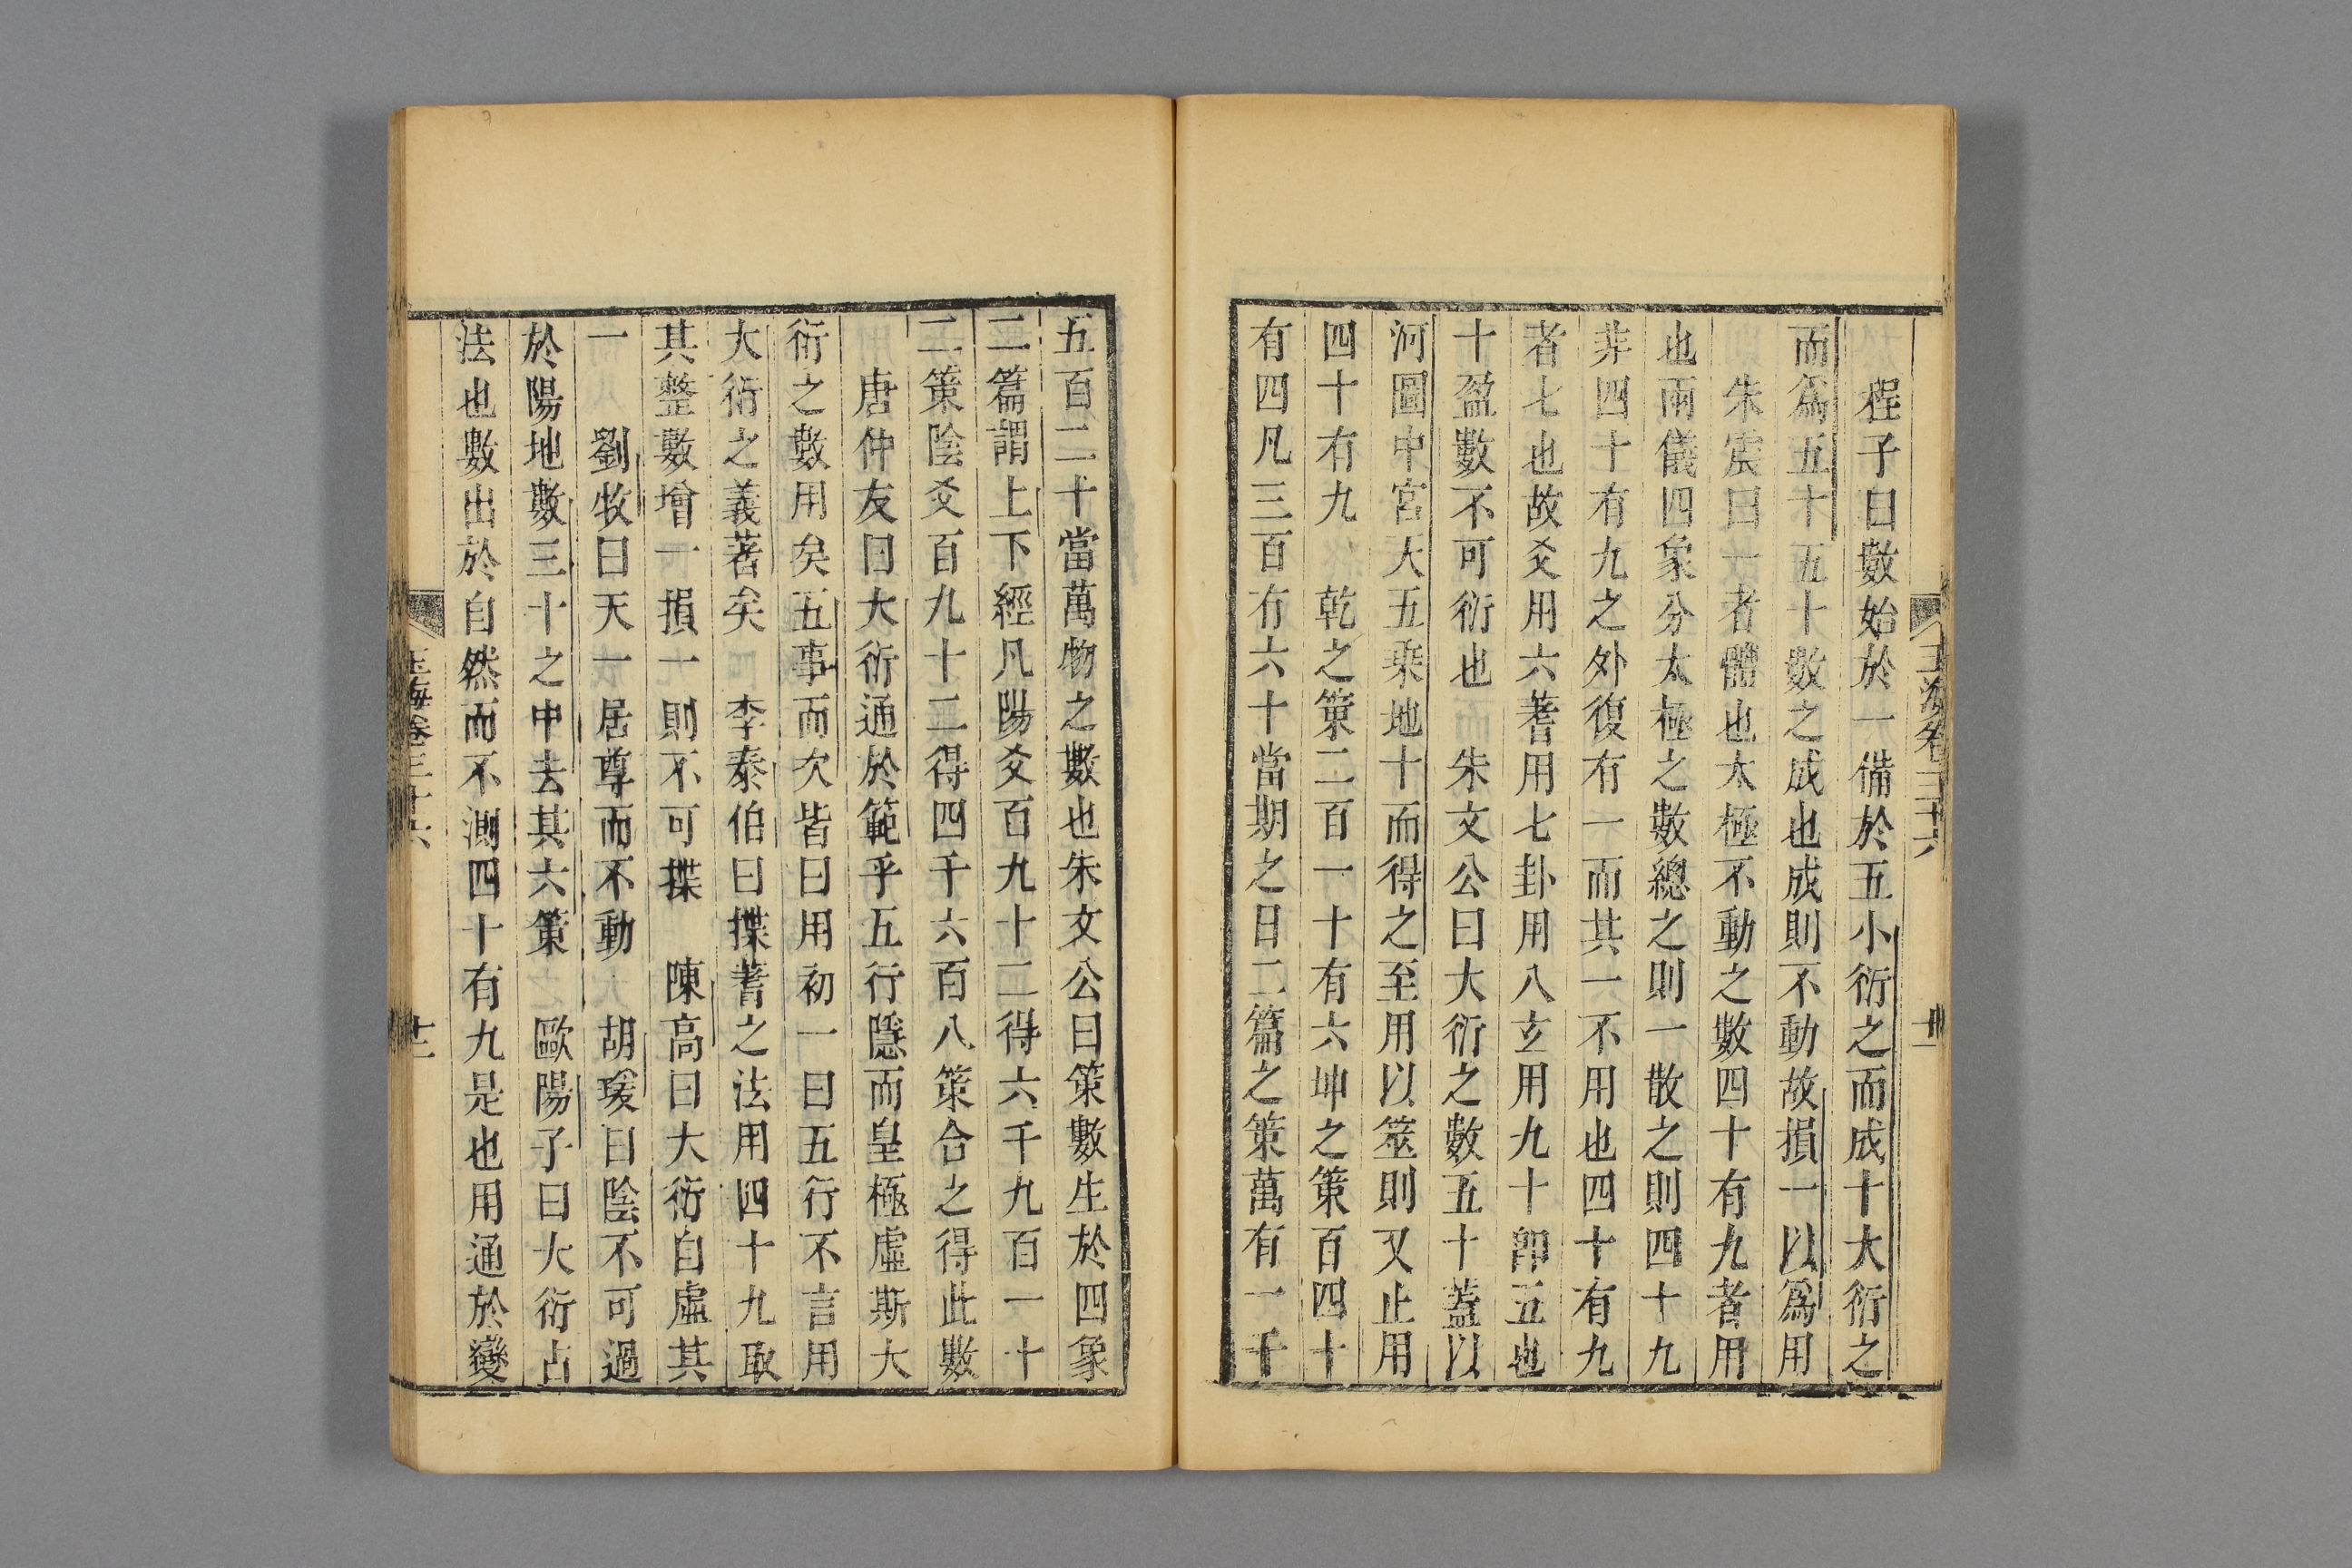 程子曰數始於一備於五小衍之而成十大衍之
而爲五十五十數之成也成則不動故損一以爲用
朱震曰一者體也太極不動之數四十有九者用
也兩儀四象分太極之數總之則一散之則四十九
非四十有九之外復有一而其一不用也四十有九
者七也故爻用六蓍用七卦用八玄用九十卽五也
十盈數不可衍也　朱文公曰大衍之數五十蓋以
河圖中宮天五乘地十而得之至用以筮則又止用
四十有九　乾之策二百一十有六坤之策百四十
有四凡三百有六十當期之日二篇之策萬有一千
五百二十當萬物之數也朱文公曰策數生於四象
二篇謂上下經凡陽爻百九十二得六千九百一十
二策陰爻百九十二得四千六百八策合之得此數
唐仲友曰大衍通於範乎五行隱而皇極虛斯大
衍之數用矣五事而次皆曰用初一曰五行不言用
大衍之義著矣　李泰伯曰揲蓍之法用四十九取
其整數增一損一則不可揲　陳高曰大衍自虛其
一　劉牧曰天一居尊而不動　胡瑗曰陰不可過
於陽地數三十之中去其六策　歐陽子曰大衍占
法也數出於自然而不測四十有九是也用通於變
玉海卷三十六
十二